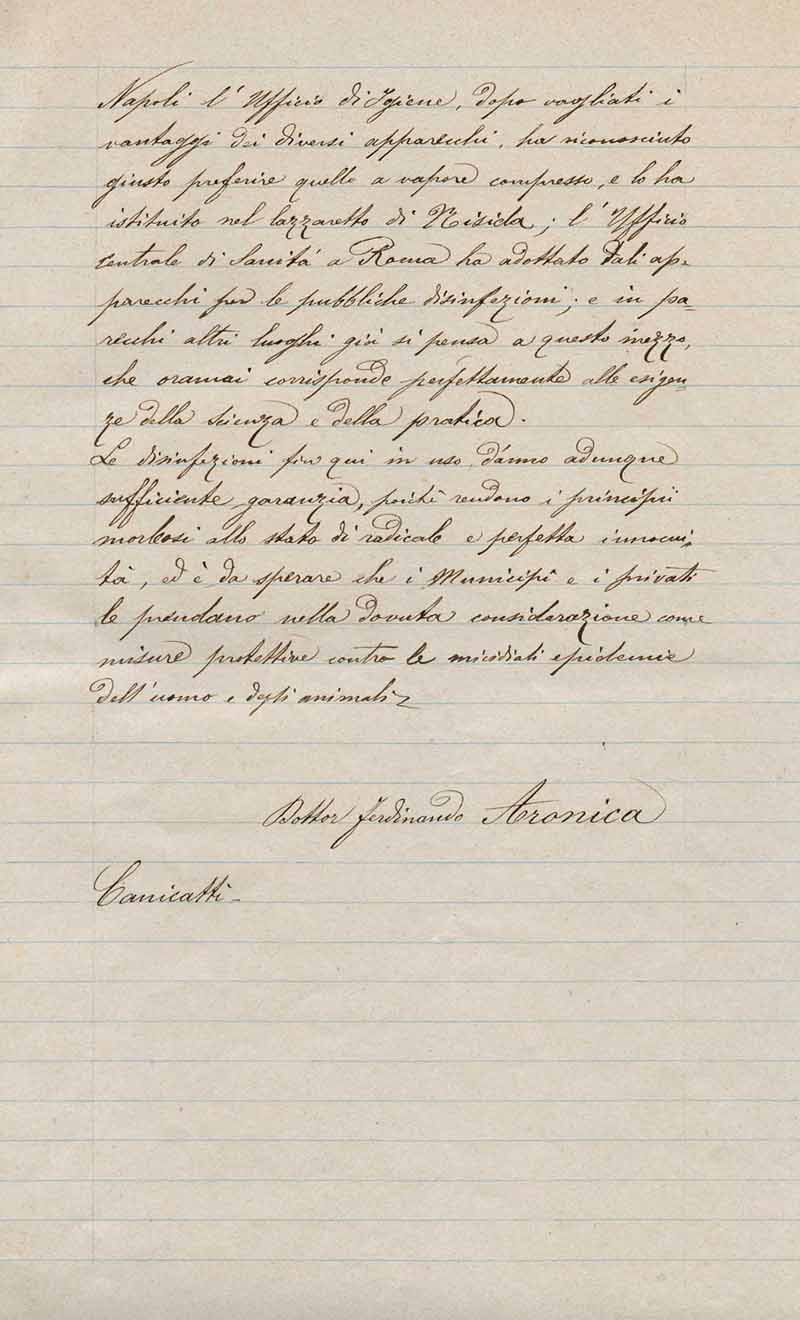 Napoli l'Ufficio di Igiene, dopo vagliati i
vantaggi dei diversi apparecchi, ha riconosciuto
giusto preferire quello a vapore compresso, e lo ha
istituito nel lazzaretto di Nisida; l'Ufficio
centrale di Sanità a Roma ha adottato tali ap=
parecchi per le pubbliche disinfezioni; e in pa=
recchi altri luoghi già si pensa a questo mezzo,
che oramai corrisponde perfettamente alle esigen=
ze della scienza e della pratica.
Le disinfezioni fin qui in uso dànno adunque
sufficiente garanzia, poichè rendono i principii
morbosi allo stato di radicale e perfetta innocui=
tà, ed è da sperare che i Municipî e i privati
le prendano nella dovuta considerazione come
misure protettive contro le micidiali epidemie
dell'uomo e degli animali
Dottor Ferdinando Aronica
Canicattì -